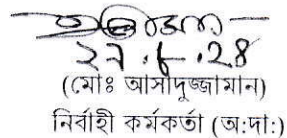 ২৭.৮.২৪
(মোঃ আসাদুজ্জামান)
নির্বাহী কর্মকর্তা (অ:দা:)